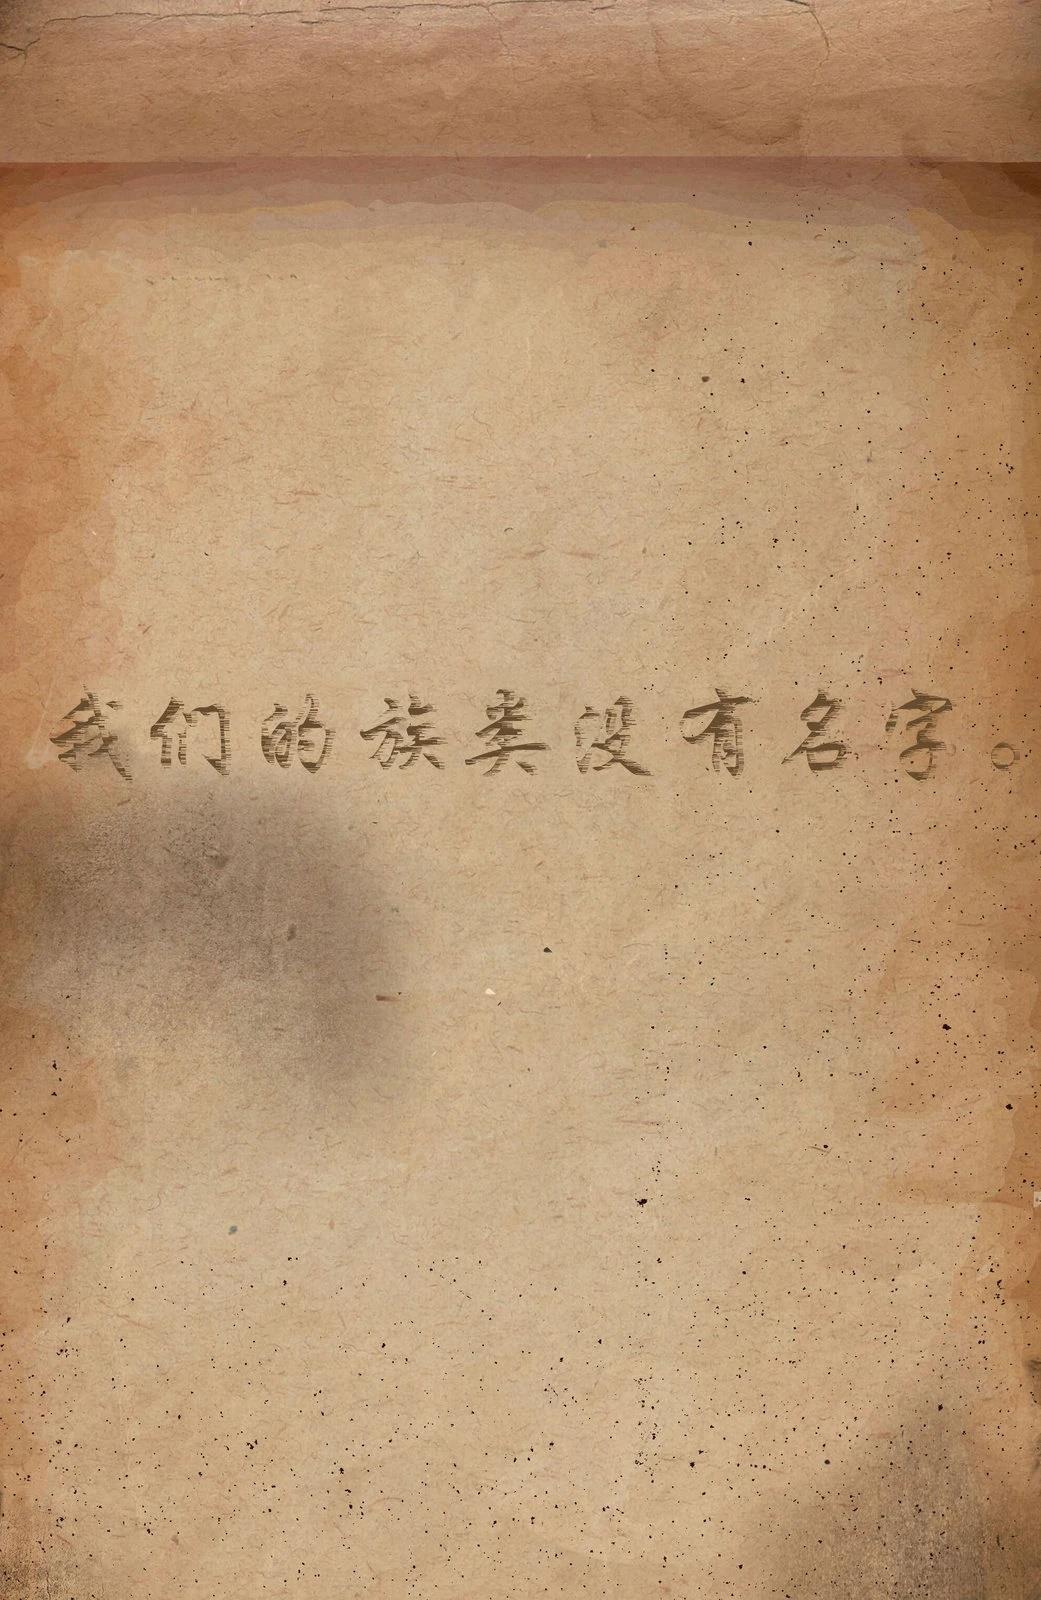 我们的族类没有名字。